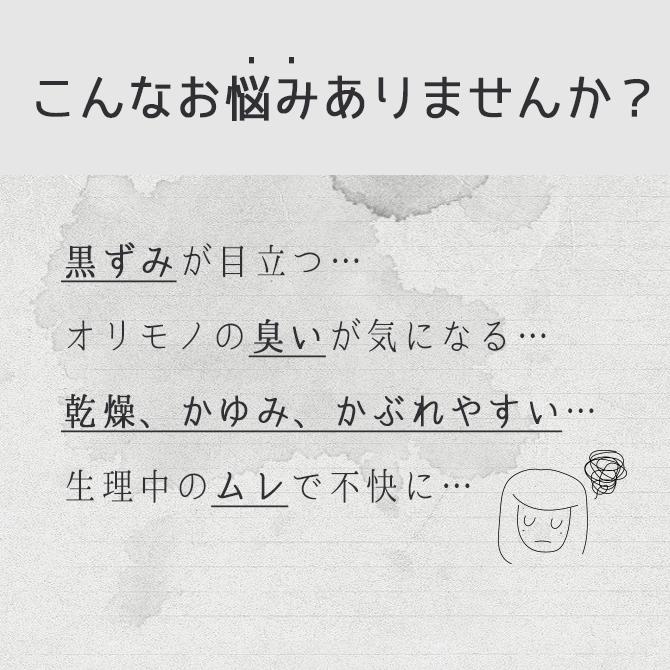 こんなお悩みありませんか？
黒ずみが目立つ…
オリモノの臭いが気になる…
乾燥、かゆみ、かぶれやすい…
生理中のムレで不快に…